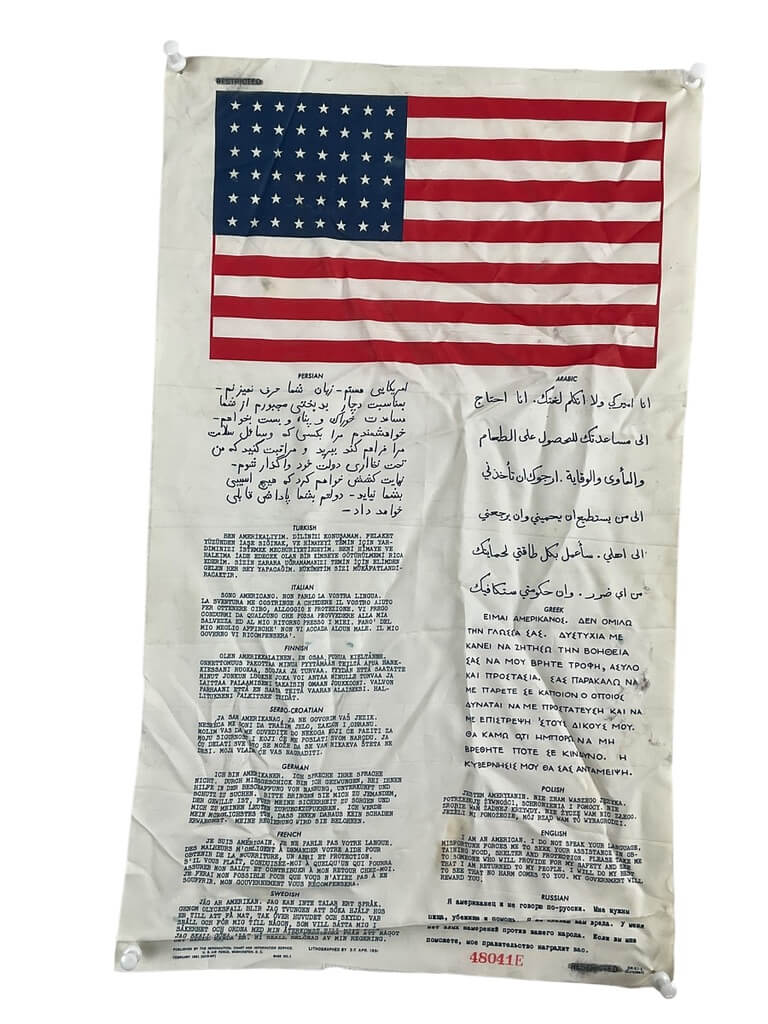 RESTRICTED
PERSIAN
امریکایی هستم - زبان شما حرف نمیزنم -
بمناسبت دچار بدبختی مجبورم از شما
مساعدت خوراک و پناه و بست بخواهم -
خواهشمندم مرا بکسی که وسائل سلامت
مرا فراهم کند ببرید و مراقبت کنید که من
تحت نظارت دولت خود واگذار شوم -
نهایت کوشش خواهم کرد که هیچ آسیبی
بشما نیاید - دولتم بشما پاداش قابلی
خواهد داد -
TURKISH
BEN AMERIKALIYIM. DİLİNİZİ KONUŞAMAM. FELAKET
YÜZÜNDEN İAŞE SIĞINAK, VE HİMAYEYİ TEMİN İÇİN YAR-
DIMINIZI İSTEMEK MECBURİYETİNDEYİM. BENİ HİMAYE VE
HALKIMA İADE EDECEK OLAN BİR KİMSEYE GÖTÜRÜLMEMİ RİCA
EDERİM. SİZİN ZARARA UĞRAMAMANIZI TEMİN İÇİN ELİMDEN
GELEN HER ŞEY YAPACAĞIM. HÜKÜMETİM SİZİ MÜKÂFATLANDI-
RACAKTIR.
ITALIAN
SONO AMERICANO. NON PARLO LA VOSTRA LINGUA.
LA SVENTURA ME COSTRINGE A CHIEDERE IL VOSTRO AIUTO
PER OTTENERE CIBO, ALLOGGIO E PROTEZIONE. VI PREGO
CONDURMI DA QUALCUNO CHE POSSA PROVVEDERE ALLA MIA
SALVEZZA ED AL MIO RITORNO PRESSO I MIEI. FARO' DEL
MIO MEGLIO AFFINCHE' NON VI ACCADA ALCUN MALE. IL MIO
GOVERNO VI RICOMPENSERA'.
FINNISH
OLEN AMERIKKALAINEN. EN OSAA PUHUA KIELTÄNNE.
ONNETTOMUUS PAKOTTAA MINUA PYYTÄMÄÄN TEILTÄ APUA HANK-
KIESSANI RUOKAA, SUOJAA JA TURVAA. PYYDÄN ETTÄ SAATATTE
MINUT JONKUN LUOKSE JOKA VOI ANTAA MINULLE TURVAA JA
LAITTAA PALAAMISENI TAKAISIN OMAAN JOUKKOONI. VALVON
PARHAANI ETTÄ EN SAATA TEITÄ VAARAN ALAISEKSI. HAL-
LITUKSENI PALKITSEE TEIDÄT.
SERBO-CROATIAN
JA SAM AMERIKANAC. JA NE GOVORIM VAŠ JEZIK.
NESREĆA ME GONI DA TRAŽIM JELO, ZAKLON I ODBRANU.
MOLIM VAS DA ME ODVEDITE DO NEKOGA KOJI ĆE PAZITI ZA
MOJU SIGURNOST I KOJI ĆE ME POSLATI SVOM NARODU. JA
ĆU DELATI SVE ŠTO SE MOŽE DA SE VAM NIKAKVA ŠTETA NE
DESI. MOJA VLADA ĆE VAS NAGRADITI.
GERMAN
ICH BIN AMERIKANER. ICH SPRECHE IHRE SPRACHE
NICHT. DURCH MISSGESCHICK BIN ICH GEZWUNGEN, BEI IHNEN
HILFE IN DER BESCHAFFUNG VON NAHRUNG, UNTERKUNFT UND
SCHUTZ ZU SUCHEN. BITTE BRINGEN SIE MICH ZU JEMANDEM,
DER GEWILLT IST, FUER MEINE SICHERHEIT ZU SORGEN UND
MICH ZU MEINEN LEUTEN ZURUECKZUFUEHREN. ICH WERDE
MEIN MOEGLICHSTES TUN, DASS IHNEN DARAUS KEIN SCHADEN
ERWAECHST. MEINE REGIERUNG WIRD SIE BELOHNEN.
FRENCH
JE SUIS AMÉRICAIN. JE NE PARLE PAS VOTRE LANGUE.
DES MALHEURS M'OBLIGENT À DEMANDER VOTRE AIDE POUR
OBTENIR DE LA NOURRITURE, UN ABRI ET PROTECTION.
S'IL VOUS PLAÎT, CONDUISEZ-MOI À QUELQU'UN QUI POURRA
ASSURER MON SALUT ET CONTRIBUER À MON RETOUR CHEZ-MOI.
JE FERAI MON POSSIBLE POUR QUE VOUS N'AYIEZ PAS À EN
SOUFFRIR. MON GOUVERNEMENT VOUS RÉCOMPENSERA.
SWEDISH
JAG ÄR AMERIKAN. JAG KAN INTE TALA ERT SPRÅK.
GENOM OLYCKSFALL BLIR JAG TVUNGEN ATT SÖKA HJÄLP HOS
ER TILL ATT FÅ MAT, TAK ÖVER HUVUDET OCH SKYDD. VAR
SNÄLL OCH FÖR MIG TILL NÅGON, SOM VILL SÄTTA MIG I
SÄKERHET OCH ORDNA MED MIN
JAG SKALL
PUBLISHED BY THE AERONAUTICAL CHART AND INFORMATION SERVICE,
U. S. AIR FORCE, WASHINGTON, D. C.
LITHOGRAPHED BY
ARABIC
انا اميركي ولا اتكلم لغتك. انا احتاج
الى مساعدتك للحصول على الطعام
والمأوى والوقاية. ارجوك ان تأخذني
الى من يستطيع ان يحميني وان يرجعني
الى اهلي. سأعمل بكل طاقتي لحمايتك
من اي ضرر. وان حكومتي ستكافيك
GREEK
ΕΙΜΑΙ ΑΜΕΡΙΚΑΝΟΣ. ΔΕΝ ΟΜΙΛΩ
ΤΗΝ ΓΛΩΣΣΑ ΣΑΣ. ΔΥΣΤΥΧΙΑ ΜΕ
ΚΑΝΕΙ ΝΑ ΖΗΤΗΣΩ ΤΗΝ ΒΟΗΘΕΙΑ
ΣΑΣ ΝΑ ΜΟΥ ΒΡΗΤΕ ΤΡΟΦΗ, ΑΣΥΛΟ
ΚΑΙ ΠΡΟΣΤΑΣΙΑ. ΣΑΣ ΠΑΡΑΚΑΛΩ ΝΑ
ΜΕ ΠΑΡΕΤΕ ΣΕ ΚΑΠΟΙΟΝ Ο ΟΠΟΙΟΣ
ΔΥΝΑΤΑΙ ΝΑ ΜΕ ΠΡΟΣΤΑΤΕΥΣΗ ΚΑΙ ΝΑ
ΜΕ ΕΠΙΣΤΡΕΨΗ 'ΣΤΟΥΣ ΔΙΚΟΥΣ ΜΟΥ.
ΘΑ ΚΑΜΩ ΟΤΙ ΗΜΠΟΡΩ ΝΑ ΜΗ
ΒΡΕΘΗΤΕ ΠΟΤΕ ΣΕ ΚΙΝΔΥΝΟ. Η
ΚΥΒΕΡΝΗΣΙΣ ΜΟΥ ΘΑ ΣΑΣ ΑΝΤΑΜΕΙΨΗ.
POLISH
JESTEM AMERYKANIN. NIE ZNAM WASZEGO JĘZYKA.
POTRZEBUJĘ ŻYWNOŚCI, SCHRONIENIA I POMOCY. NIE
ZROBIĘ WAM ŻADNEJ KRZYWDY. NIE ŻYCZĘ WAM NIC ZŁEGO.
JEŻELI MI POMOŻECIE, MÓJ RZĄD WAM TO WYNAGRODZI.
ENGLISH
I AM AN AMERICAN. I DO NOT SPEAK YOUR LANGUAGE.
MISFORTUNE FORCES ME TO SEEK YOUR ASSISTANCE IN OB-
TAINING FOOD, SHELTER AND PROTECTION. PLEASE TAKE ME
TO SOMEONE WHO WILL PROVIDE FOR MY SAFETY AND SEE
THAT I AM RETURNED TO MY PEOPLE. I WILL DO MY BEST
TO SEE THAT NO HARM COMES TO YOU. MY GOVERNMENT WILL
REWARD YOU.
RUSSIAN
Я американец и не говорю по-русски. Мне нужны
пища, убежище и помощь. Я не сделаю вам вреда. У меня
нет злых намерений против вашего народа. Если вы мне
поможете, мое правительство наградит вас.
48041E
RESTRICTED